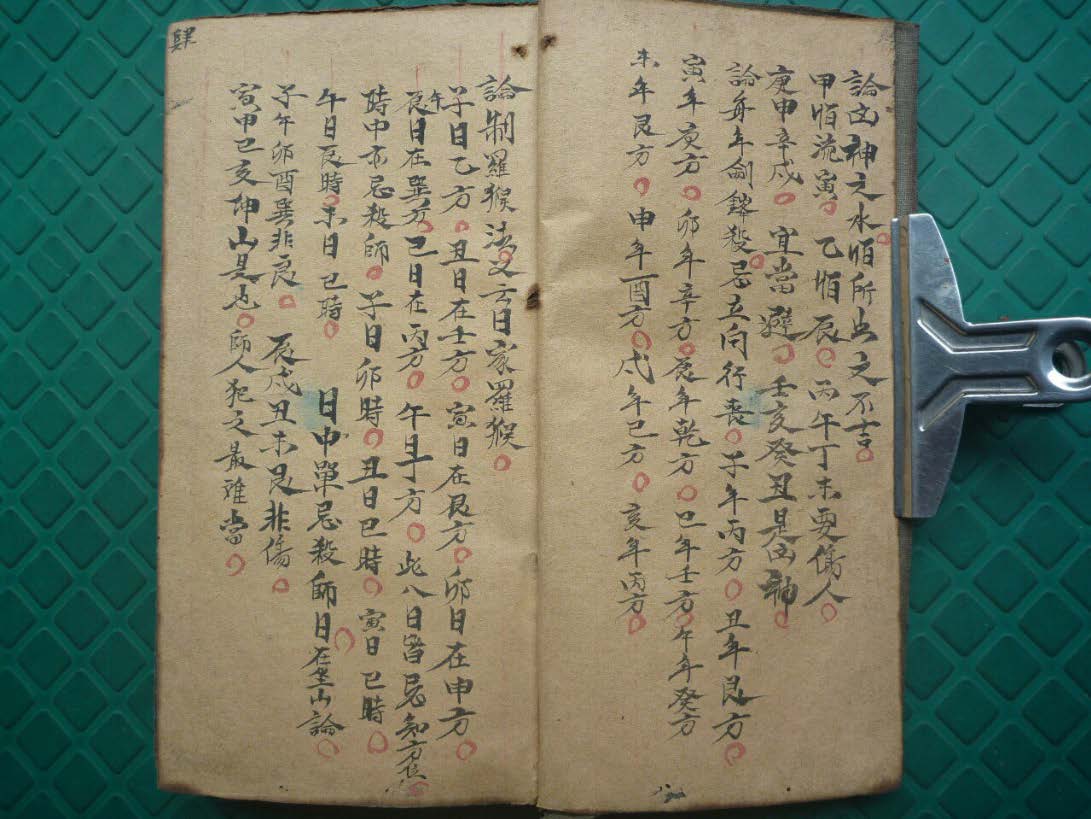 論凶神之水順所出之不吉
甲順流寅 乙順辰 丙午丁未要傷人
庚申辛戍 宜當避 壬亥癸丑是凶神
論年年劍鋒殺忌立向行丧 子年丙方 丑年艮方
寅年庚方 卯年辛方 辰年乾方 巳年壬方 午年癸方
未年艮方 申年酉方 戍年巳方 亥年丙方
肆
論制羅猴法又云日家羅猴
子日乙方 丑日在壬方 寅日在艮方 卯日在申方
辰日在巽方 巳日在丙方 午日丁方 此八日皆忌知方位
時中亦忌殺師 子日卯時 丑日巳時 寅日巳時
午日艮時 未日巳時 日中單忌殺師日在坐山論
子午卯酉巽非良 辰戍丑未艮非傷
寅甲巳亥坤山是也 師人犯之最难當